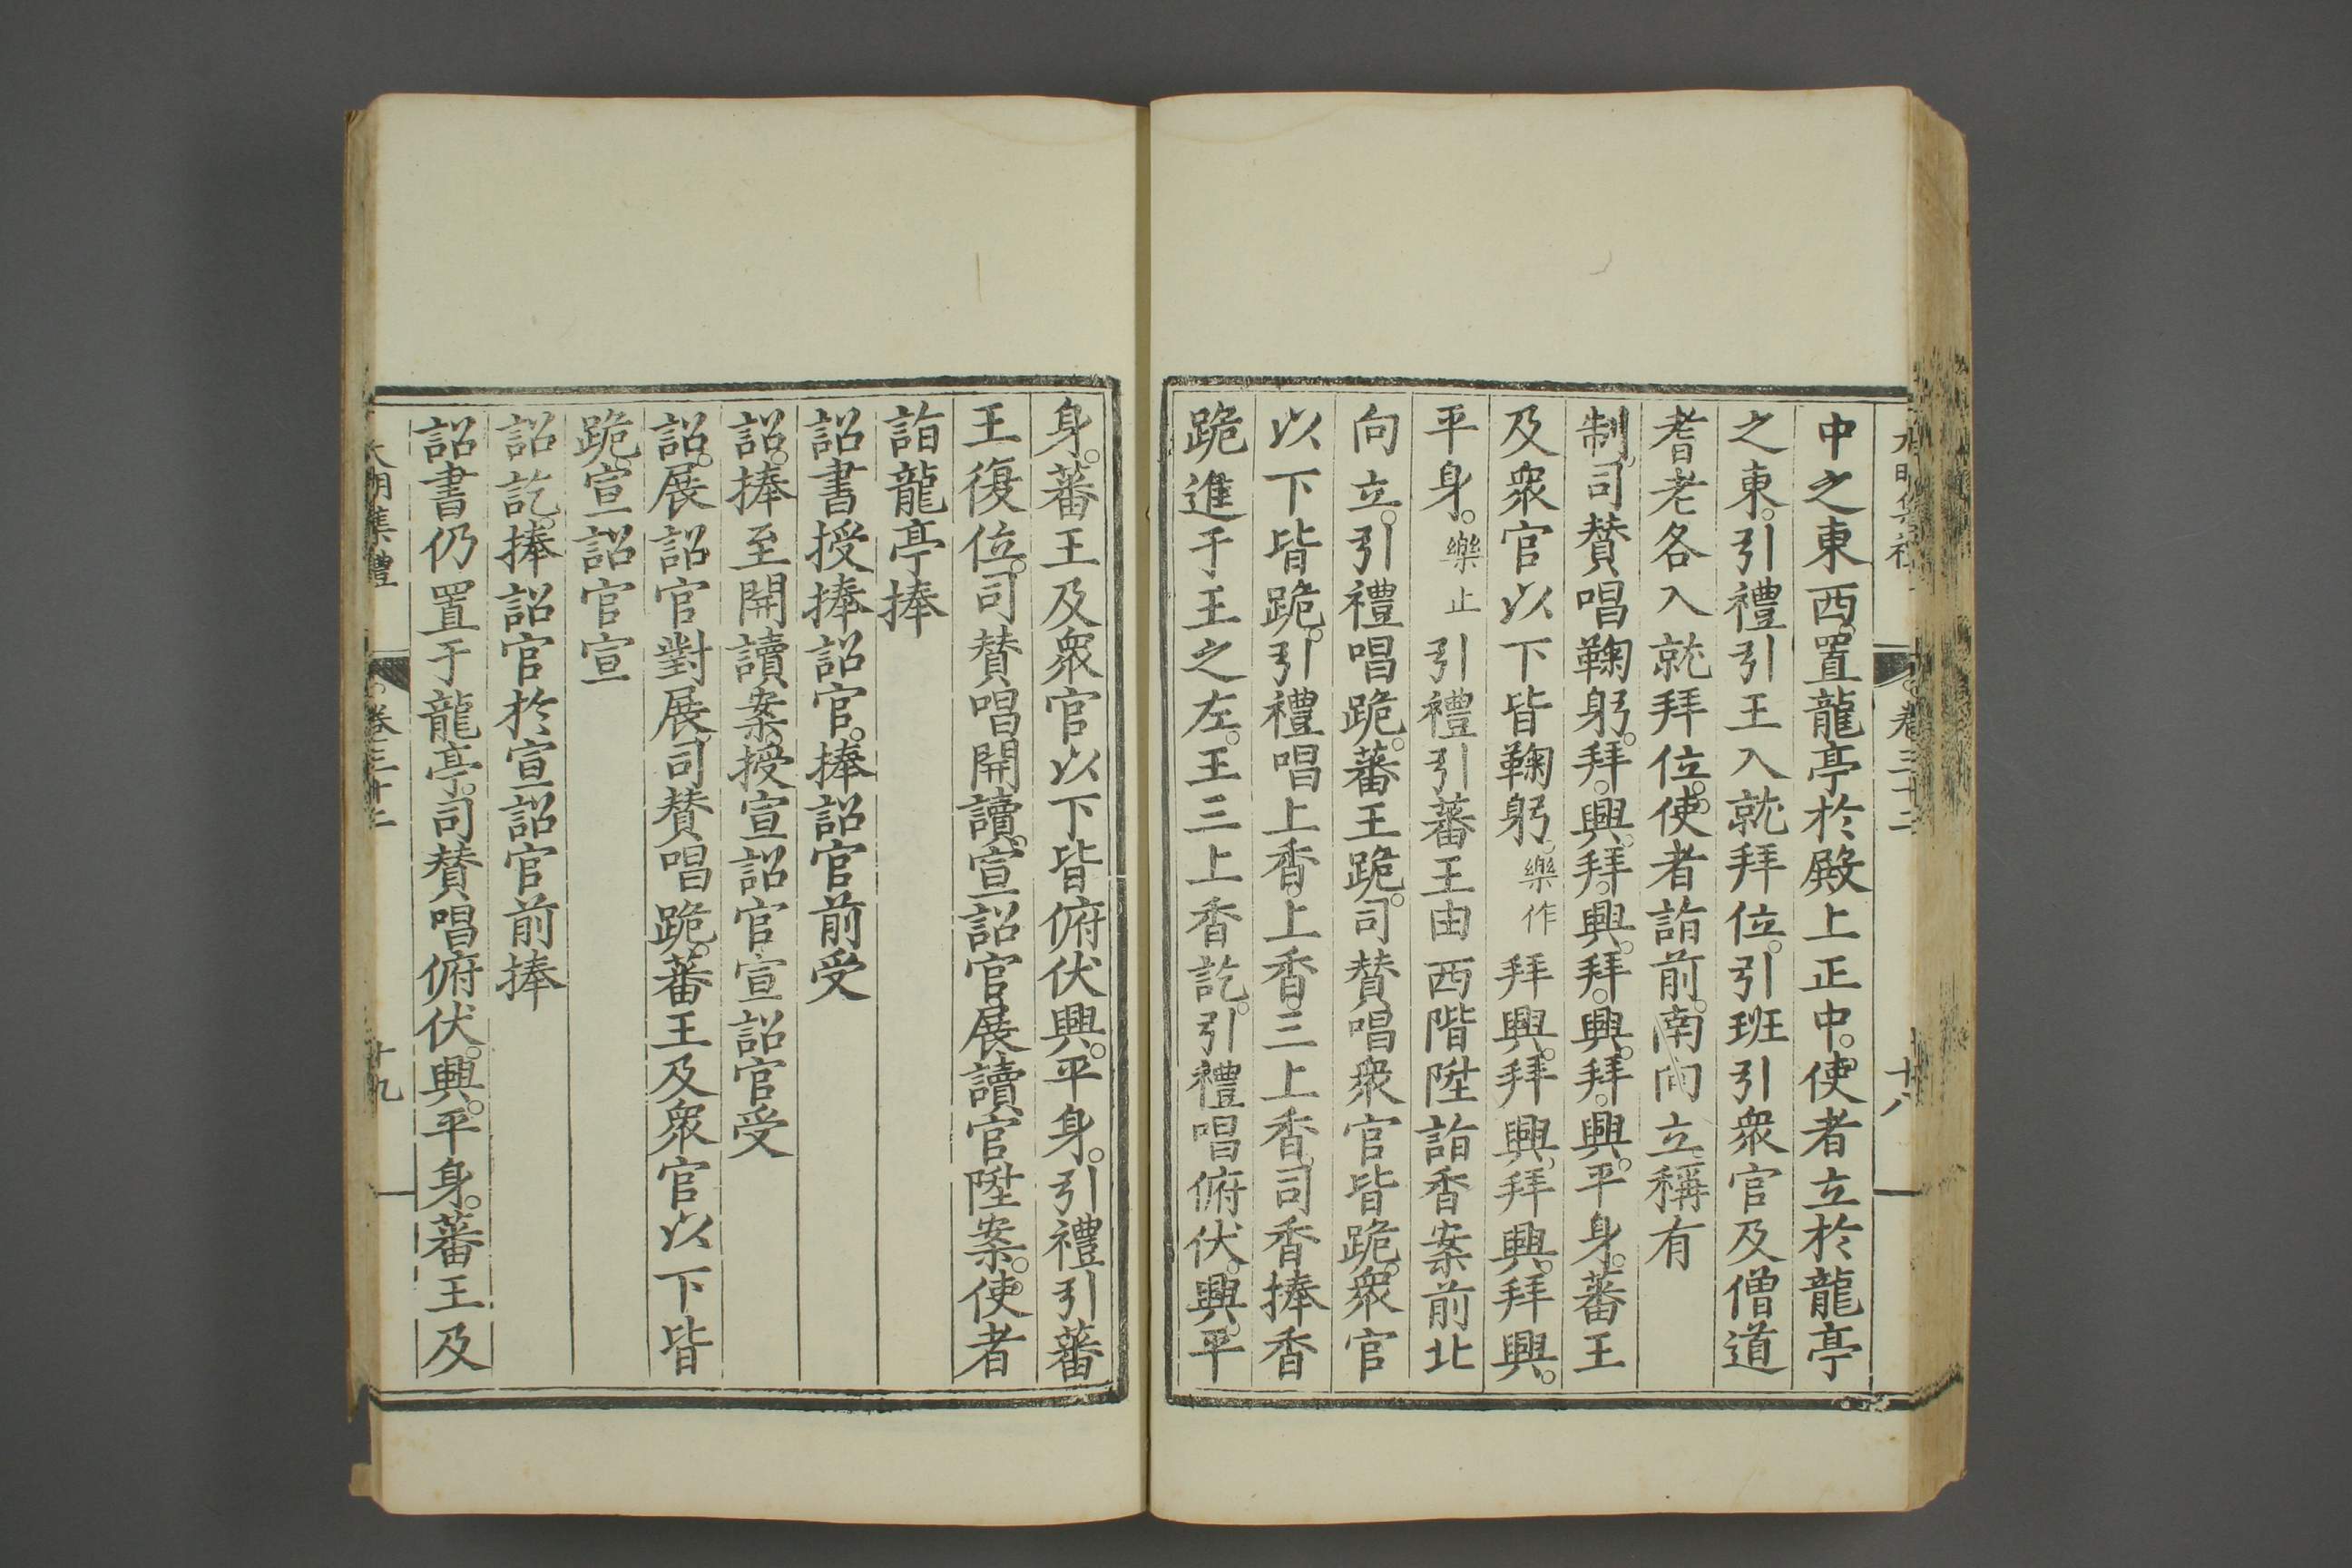 大明集禮
卷三十二
十八
中之東西。置龍亭於殿上正中。使者立於龍亭
之東。引禮引王入就拜位。引班引衆官及僧道
耆老各入就拜位。使者詣前。南向立。稱有
制。司賛唱鞠躬。拜。興。拜。興。拜。興。拜。興。平身。蕃王
及衆官以下皆鞠躬。樂作拜興。拜興。拜興。拜興。
平身。樂止引禮引蕃王由西階陞詣香案前北
向立。引禮唱跪。蕃王跪。司賛唱衆官皆跪。衆官
以下皆跪。引禮唱上香。上香。三上香。司香捧香
跪進于王之左。王三上香訖。引禮唱俯伏。興。平
身。蕃王及衆官以下皆俯伏興。平身。引禮引蕃
王復位。司賛唱開讀。宣詔官展讀官陞案。使者
詣龍亭捧
詔書授捧詔官。捧詔官前受
詔。捧至開讀案。授宣詔官宣詔官受
詔。展詔官對展。司賛唱跪。蕃王及衆官以下皆
跪。宣詔官宣
詔訖。捧詔官於宣詔官前捧
詔書仍置于龍亭。司賛唱俯伏。興。平身。蕃王及
大明集禮
卷三十二
十九